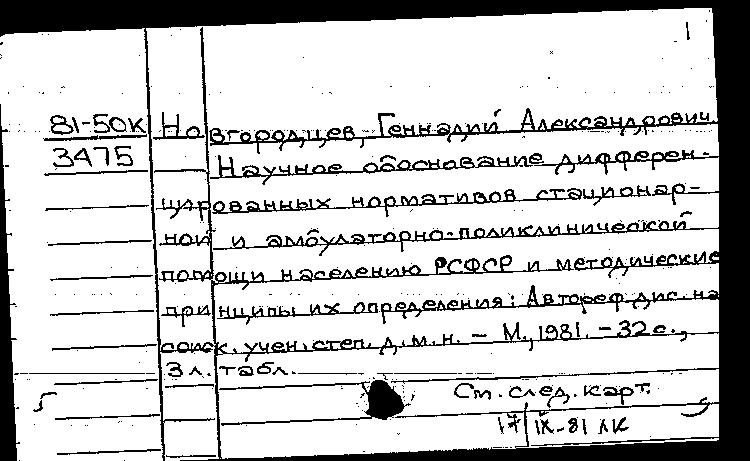 1
81-50к Новгородцев, Геннадий Александрович.
3475 Научное обоснование дифферен-
цированных нормативов стационар-
ной и амбулаторно-поликлинической
помощи населению РСФСР и методические
принципы их определения: Автореф. дис. на
соиск. учен. степ. д. м. н. - М., 1981. - 32 с.,
3 л. табл.
См. след. карт.
17/IX-81 ЛК